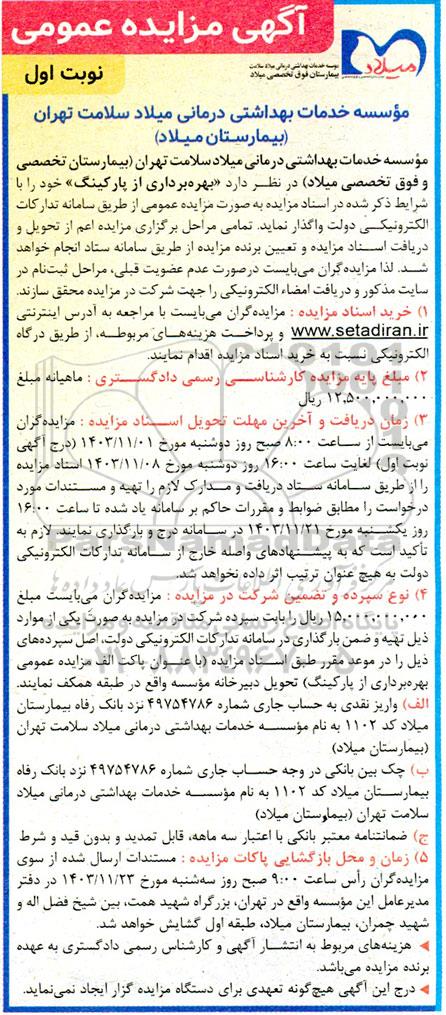 آگهی مزایده عمومی
نوبت اول
میلاد
موسسه خدمات بهداشتی درمانی میلاد سلامت
بیمارستان فوق تخصصی میلاد
مؤسسه خدمات بهداشتی درمانی میلاد سلامت تهران
(بیمارستان میلاد)
مؤسسه خدمات بهداشتی درمانی میلاد سلامت تهران (بیمارستان تخصصی
و فوق تخصصی میلاد) در نظر دارد «بهره‌برداری از پارکینگ» خود را با
شرایط ذکر شده در اسناد مزایده به صورت مزایده عمومی از طریق سامانه تدارکات
الکترونیکی دولت واگذار نماید. تمامی مراحل برگزاری مزایده اعم از تحویل و
دریافت اسناد مزایده و تعیین برنده مزایده از طریق سامانه ستاد انجام خواهد
شد. لذا مزایده‌گران می‌بایست درصورت عدم عضویت قبلی، مراحل ثبت‌نام در
سایت مذکور و دریافت امضاء الکترونیکی را جهت شرکت در مزایده محقق سازند.
۱) خرید اسناد مزایده : مزایده‌گران می‌بایست با مراجعه به آدرس اینترنتی
www.setadiran.ir و پرداخت هزینه‌های مربوطه، از طریق درگاه
الکترونیکی نسبت به خرید اسناد مزایده اقدام نمایند.
۲) مبلغ پایه مزایده کارشناسی رسمی دادگستری : ماهیانه مبلغ
۱۲,۵۰۰,۰۰۰,۰۰۰ ریال
۳) زمان دریافت و آخرین مهلت تحویل اسناد مزایده : مزایده‌گران
می‌بایست از ساعت ۸:۰۰ صبح روز دوشنبه مورخ ۱۴۰۳/۱۱/۰۱ (درج آگهی
نوبت اول) لغایت ساعت ۱۶:۰۰ روز دوشنبه مورخ ۱۴۰۳/۱۱/۰۸ اسناد مزایده
را از طریق سامانه ستاد دریافت و مدارک لازم را تهیه و مستندات مورد
درخواست را مطابق ضوابط و مقررات حاکم بر سامانه یاد شده تا ساعت ۱۶:۰۰
روز یکشنبه مورخ ۱۴۰۳/۱۱/۲۱ در سامانه درج و بارگذاری نمایند. لازم به
تأکید است که به پیشنهادهای واصله خارج از سامانه تدارکات الکترونیکی
دولت به هیچ عنوان ترتیب اثر داده نخواهد شد.
۴) نوع سپرده و تضمین شرکت در مزایده : مزایده‌گران می‌بایست مبلغ
ریال را بابت سپرده شرکت در مزایده به صورت یکی از موارد
ذیل تهیه و ضمن بارگذاری در سامانه تدارکات الکترونیکی دولت، اصل سپرده‌های
ذیل را در موعد مقرر طبق اسناد مزایده (با عنوان پاکت الف مزایده عمومی
بهره‌برداری از پارکینگ) تحویل دبیرخانه مؤسسه واقع در طبقه همکف نمایند.
الف) واریز نقدی به حساب جاری شماره ۴۹۷۵۴۷۸۶ نزد بانک رفاه بیمارستان
میلاد کد ۱۱۰۲ به نام مؤسسه خدمات بهداشتی درمانی میلاد سلامت تهران
(بیمارستان میلاد)
ب) چک بین بانکی در وجه حساب جاری شماره ۴۹۷۵۴۷۸۶ نزد بانک رفاه
بیمارستان میلاد کد ۱۱۰۲ به نام مؤسسه خدمات بهداشتی درمانی میلاد
سلامت تهران (بیمارستان میلاد)
ج) ضمانتنامه معتبر بانکی با اعتبار سه ماهه، قابل تمدید و بدون قید و شرط
۵) زمان و محل بازگشایی پاکات مزایده : مستندات ارسال شده از سوی
مزایده‌گران رأس ساعت ۹:۰۰ صبح روز سه‌شنبه مورخ ۱۴۰۳/۱۱/۲۳ در دفتر
مدیرعامل این مؤسسه واقع در تهران، بزرگراه شهید همت، بین شیخ فضل اله و
شهید چمران، بیمارستان میلاد، طبقه اول گشایش خواهد شد.
◄ هزینه‌های مربوط به انتشار آگهی و کارشناس رسمی دادگستری به عهده
برنده مزایده می‌باشد.
◄ درج این آگهی هیچ‌گونه تعهدی برای دستگاه مزایده گزار ایجاد نمی‌نماید.